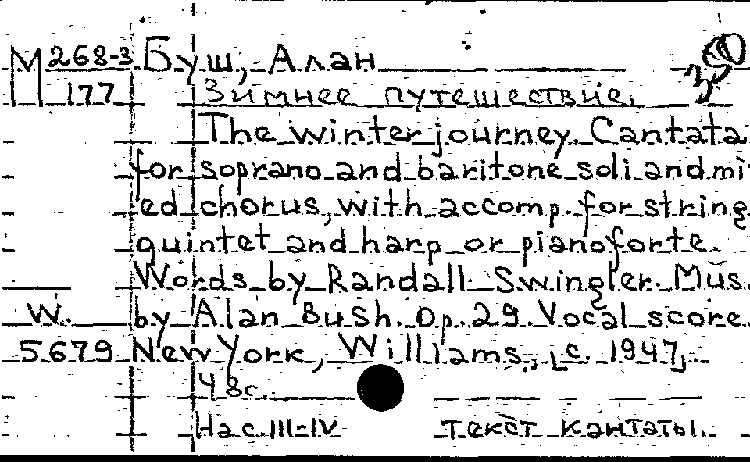 М 268-3 Буш, Алан 350
177 Зимнее путешествие.
The winter journey. Cantata
for soprano and baritone soli and mi
ed chorus, with accomp. for string
quintet and harp or pianoforte.
Words by Randall Swingler. Mus.
W. by Alan Bush. Op. 29. Vocal score.
5679 New York, Williams, [c. 1947]
48с.
На с. III-IV текст кантаты.